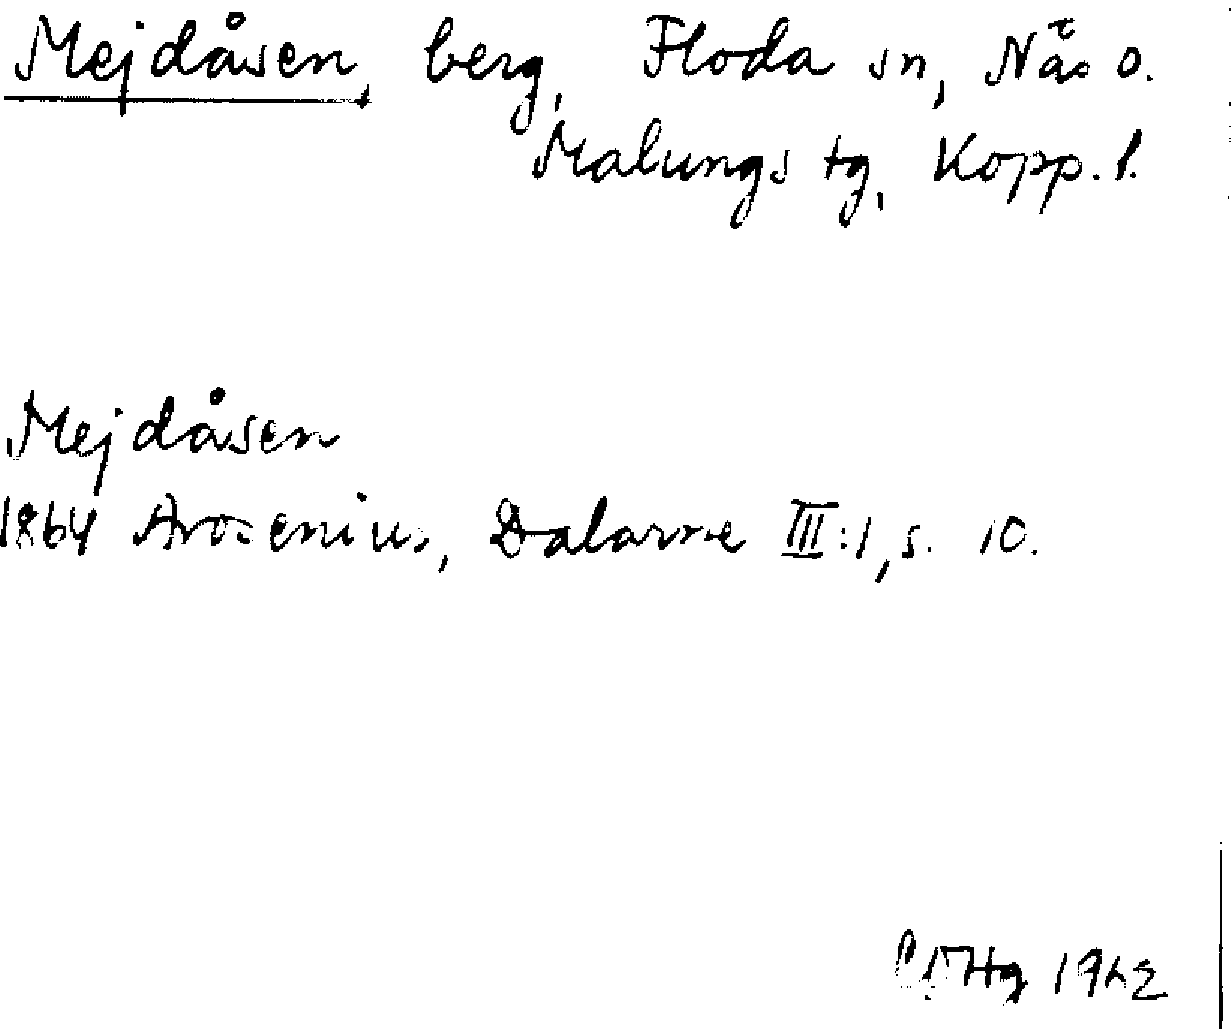 Mejdåsen, berg, Floda sn, Nås o.
Malungs tg, Kopp. l.
Mejdåsen
1864 Arosenius, Dalarne III:1, s. 10.